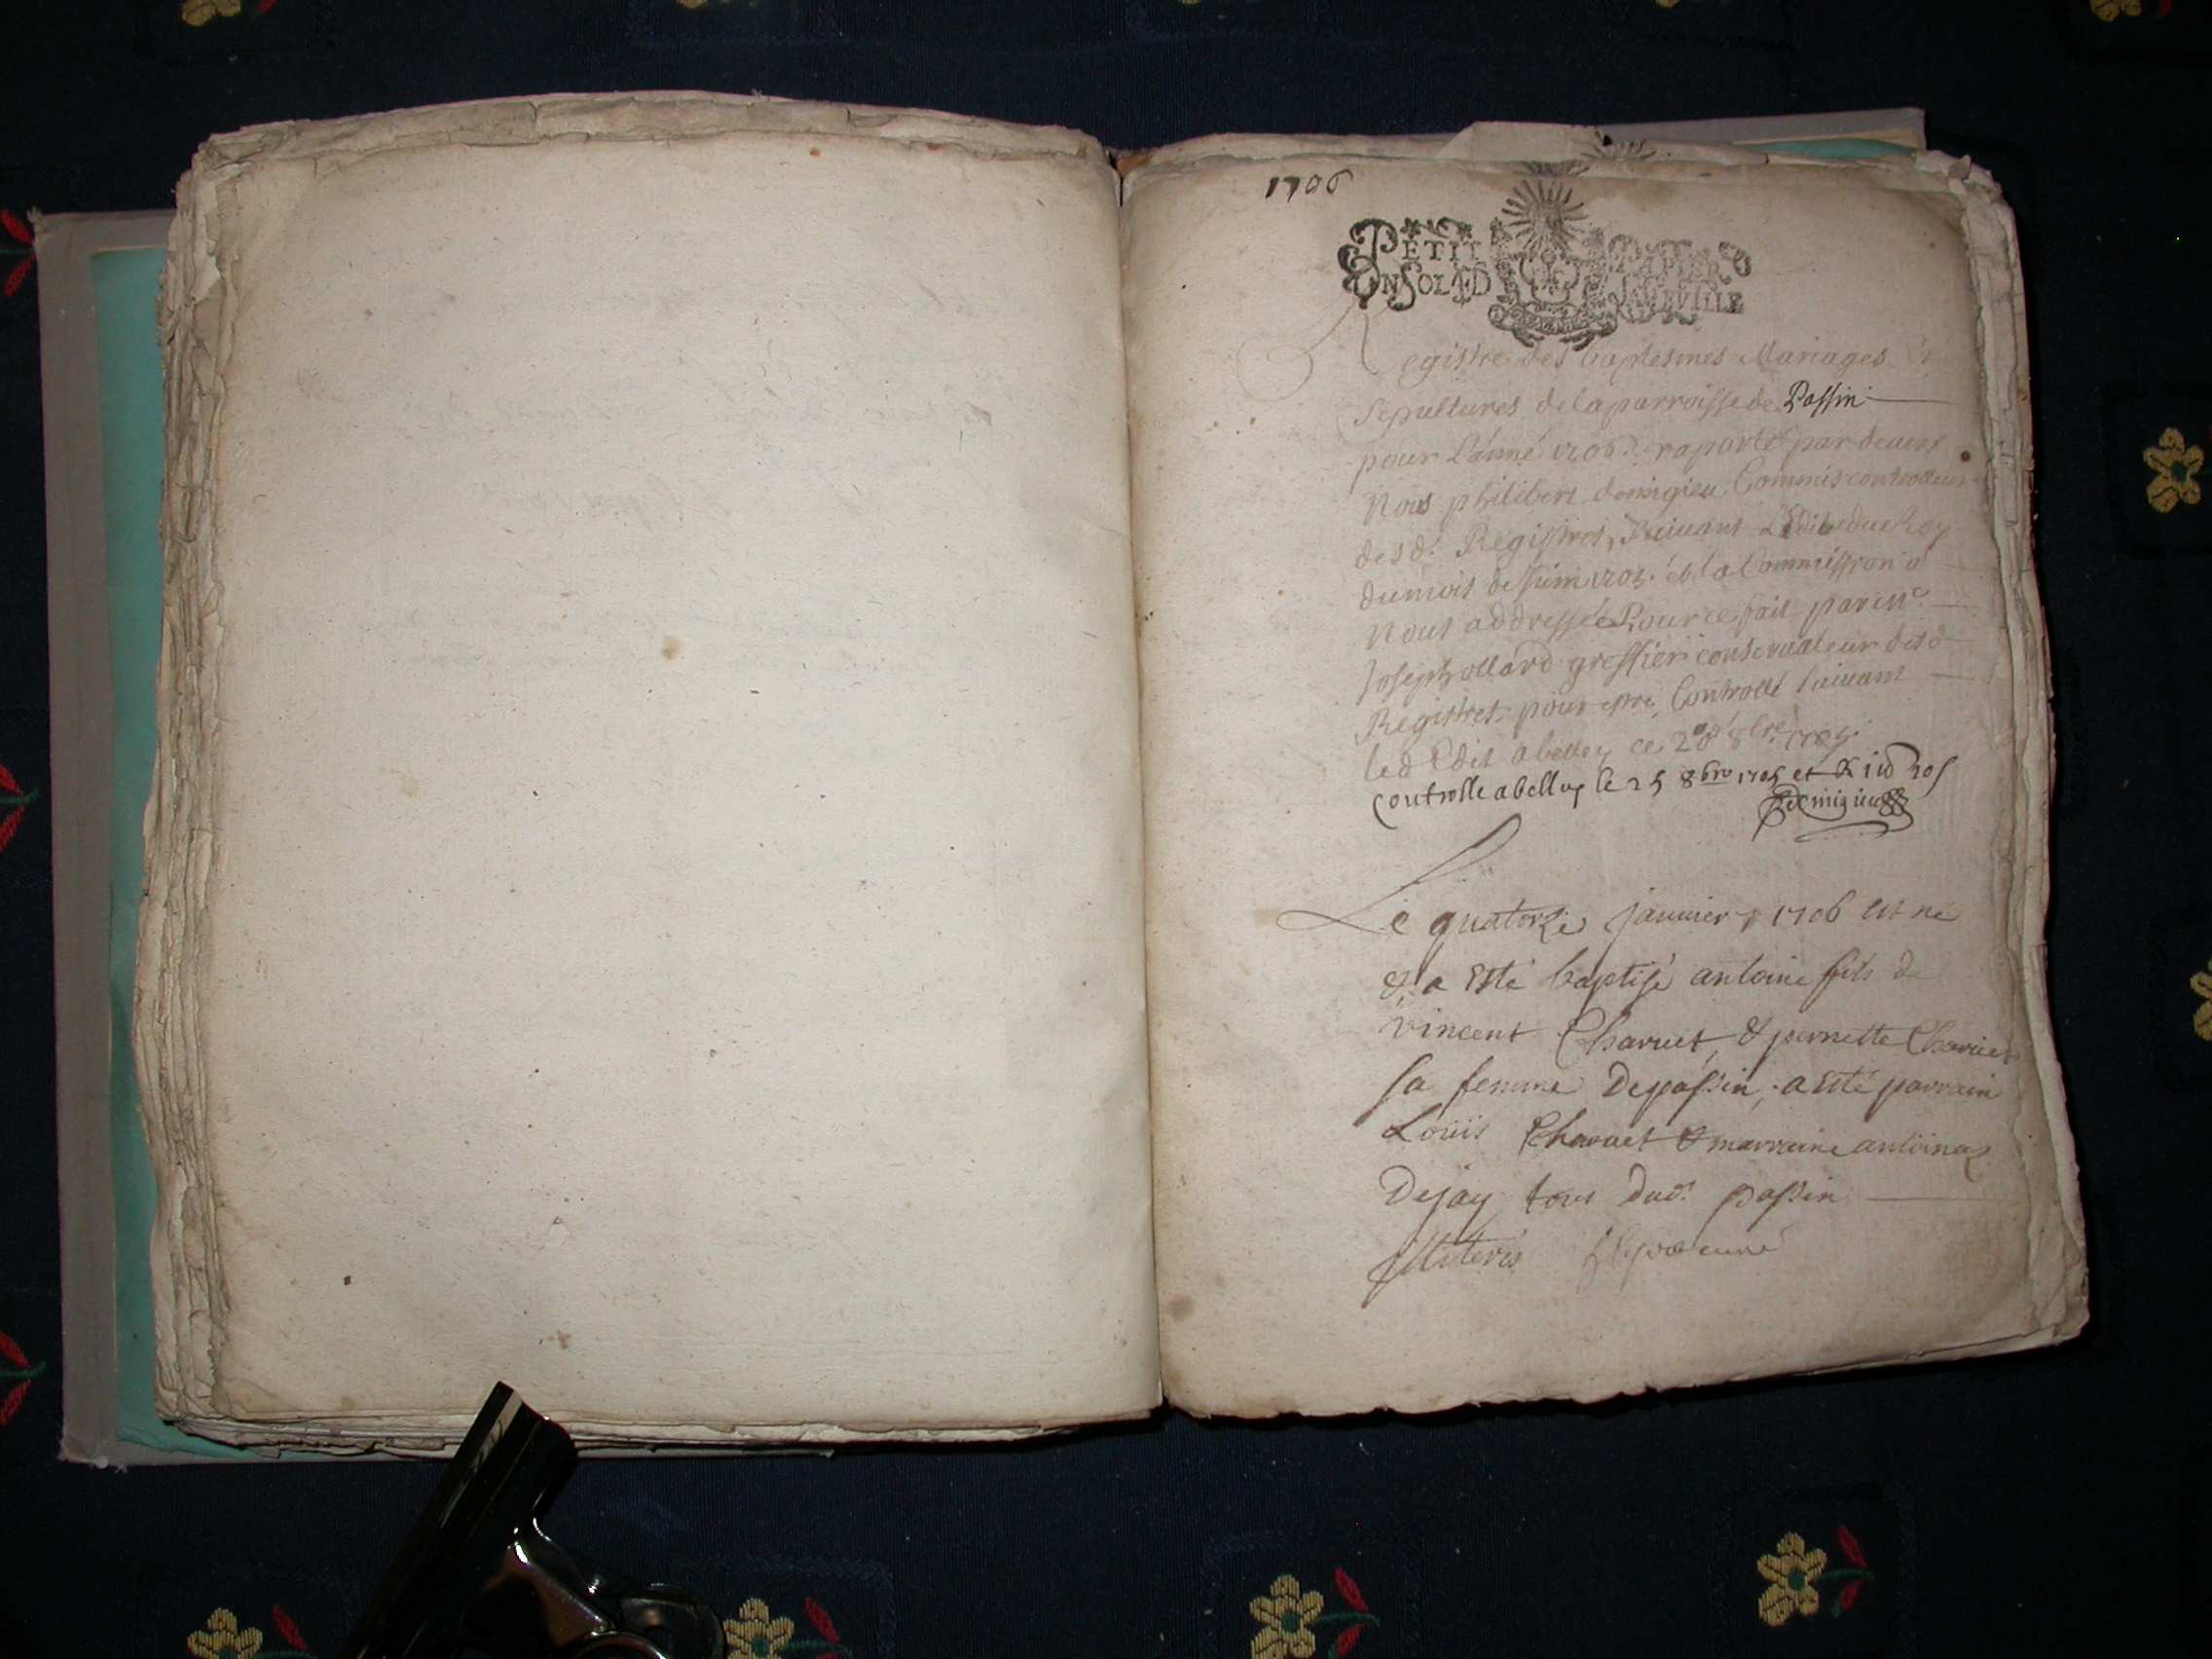 1706
PETIT PAPIER
UN SOL 4 D LA FEUILLE
Registre des baptesmes Mariages Et
Sepultures de la parroisse de Passin
pour L'anné 1706. raporté par devant
Nous philibert demigieu Commis controlleur
des d. Registres, suivant L'Edit du Roy
du mois de Juin 1705. et la Commission a
Nous addressée Pour ce fait par Me
Joseph ollard greffier conservateur desd
Registres pour estre Controllé suivant
led Edit a belley ce 8bre 1705.
Controlle a belley le 25 8bre 1705 et R 10 s
Demigieu
Le quatorze janvier 1706 est né
& a esté baptisé antoine fils de
vincent Charuet & pernette Charuet
sa femme De passin, a esté parrain
Louïs Charuet & marraine antoina
Dejay tous dud. passin
illiteris curé